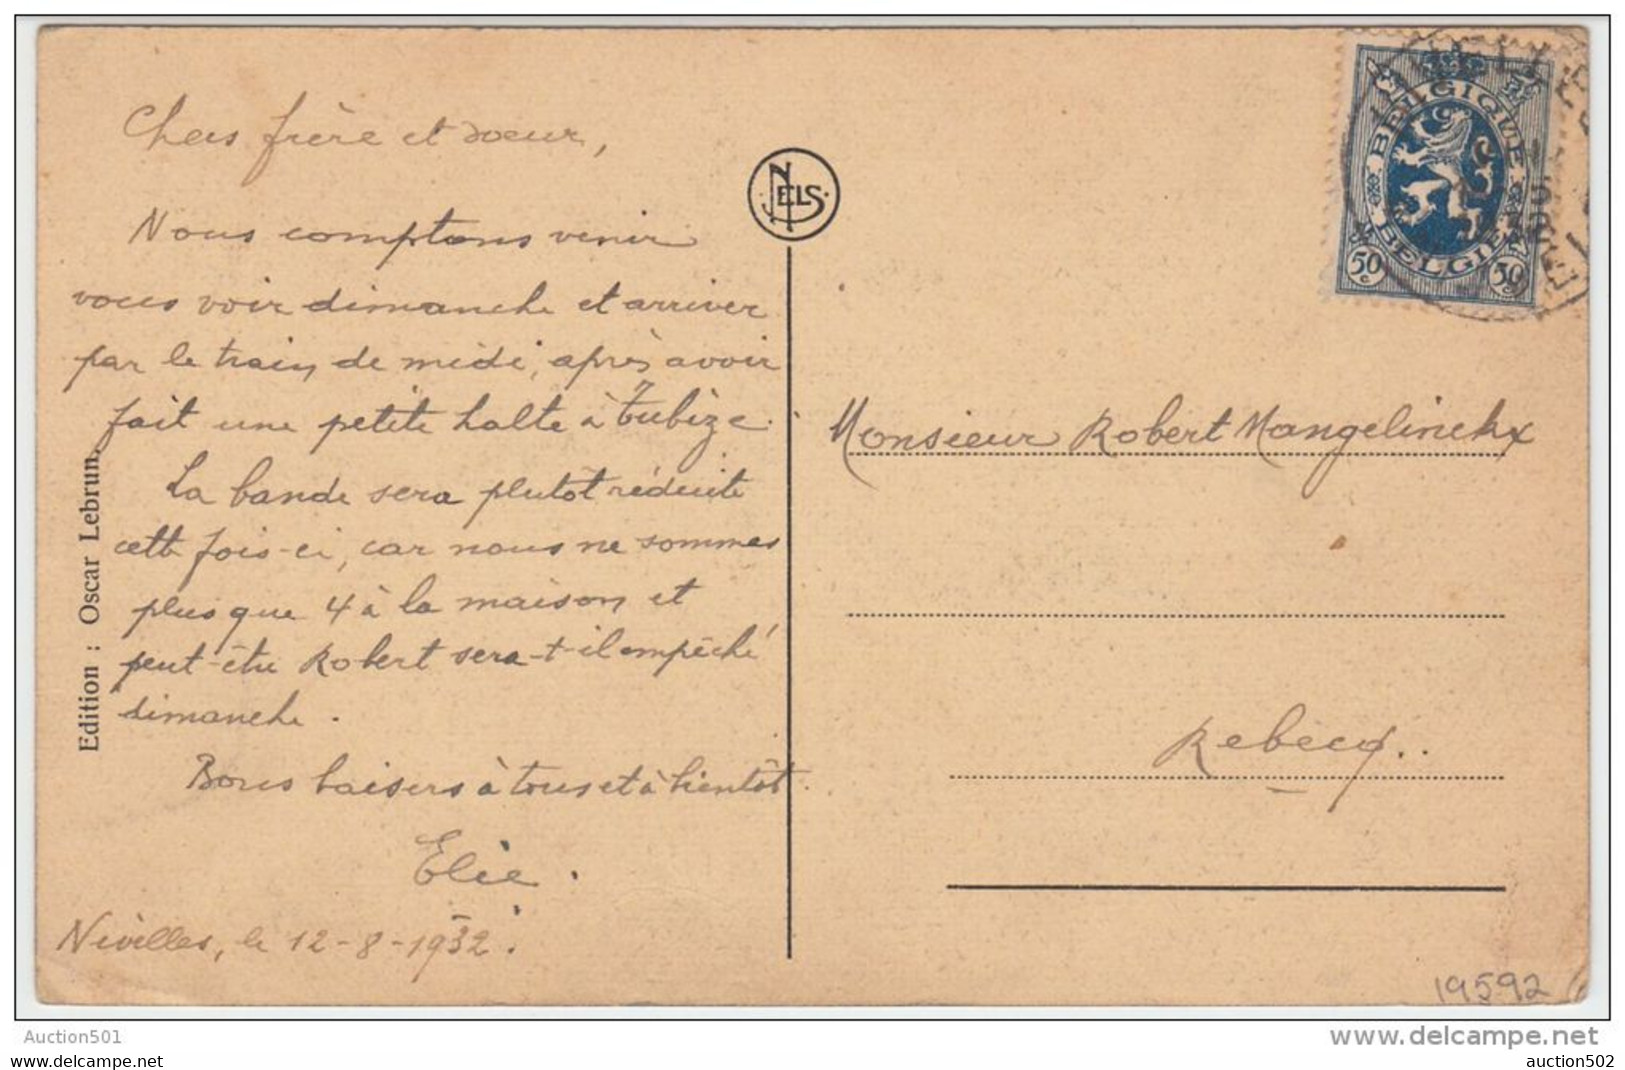 Chers frère et soeur,
Nous comptons venir
vous voir dimanche et arriver
par le train de midi, après avoir
fait une petite halte à Tubize.
La bande sera plutôt réduite
cette fois-ci, car nous ne sommes
plus que 4 à la maison et
peut-être Robert sera-t-il empêché
dimanche.
Bons baisers à tous et à bientôt.
Elie.
Nivelles, le 12-8-1932.
Edition : Oscar Lebrun.
NELS
BELGIQUE
BELGIË
50 c
50 c
Monsieur Robert Mangelinckx
Rebecq..
19592
Auction501
www.delcampe.net
auction502
auction502